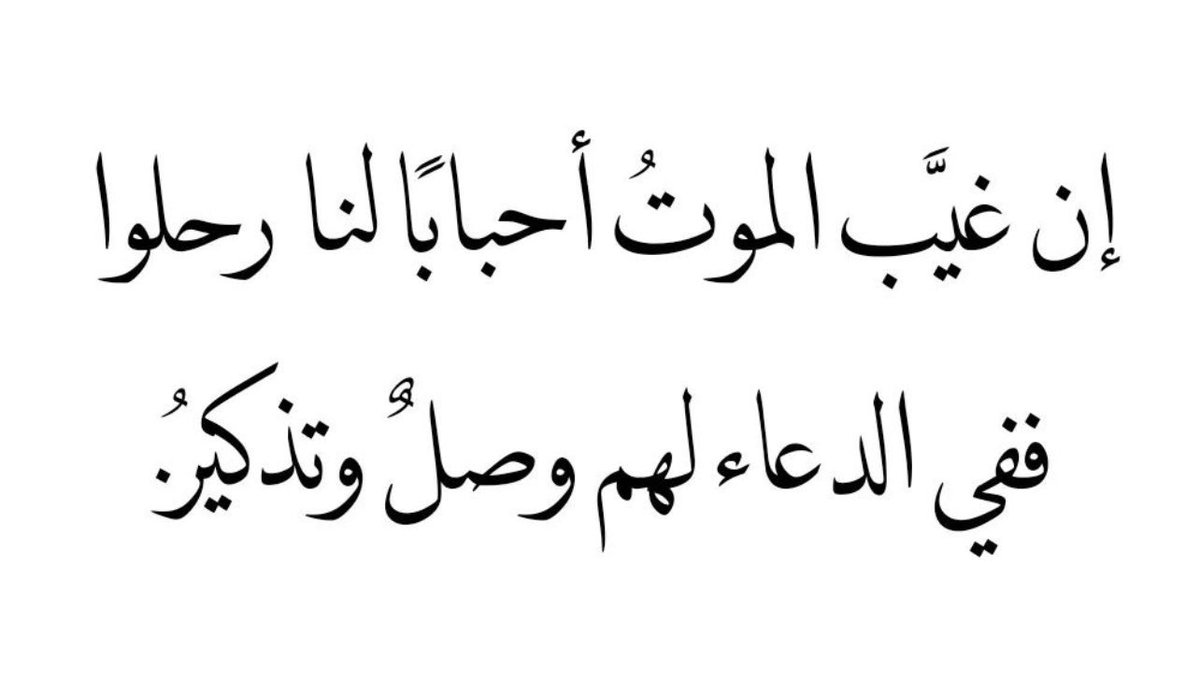 إن غيَّب الموتُ أحبابًا لنا رحلوا
ففي الدعاء لهم وصلٌ وتذكيرُ.